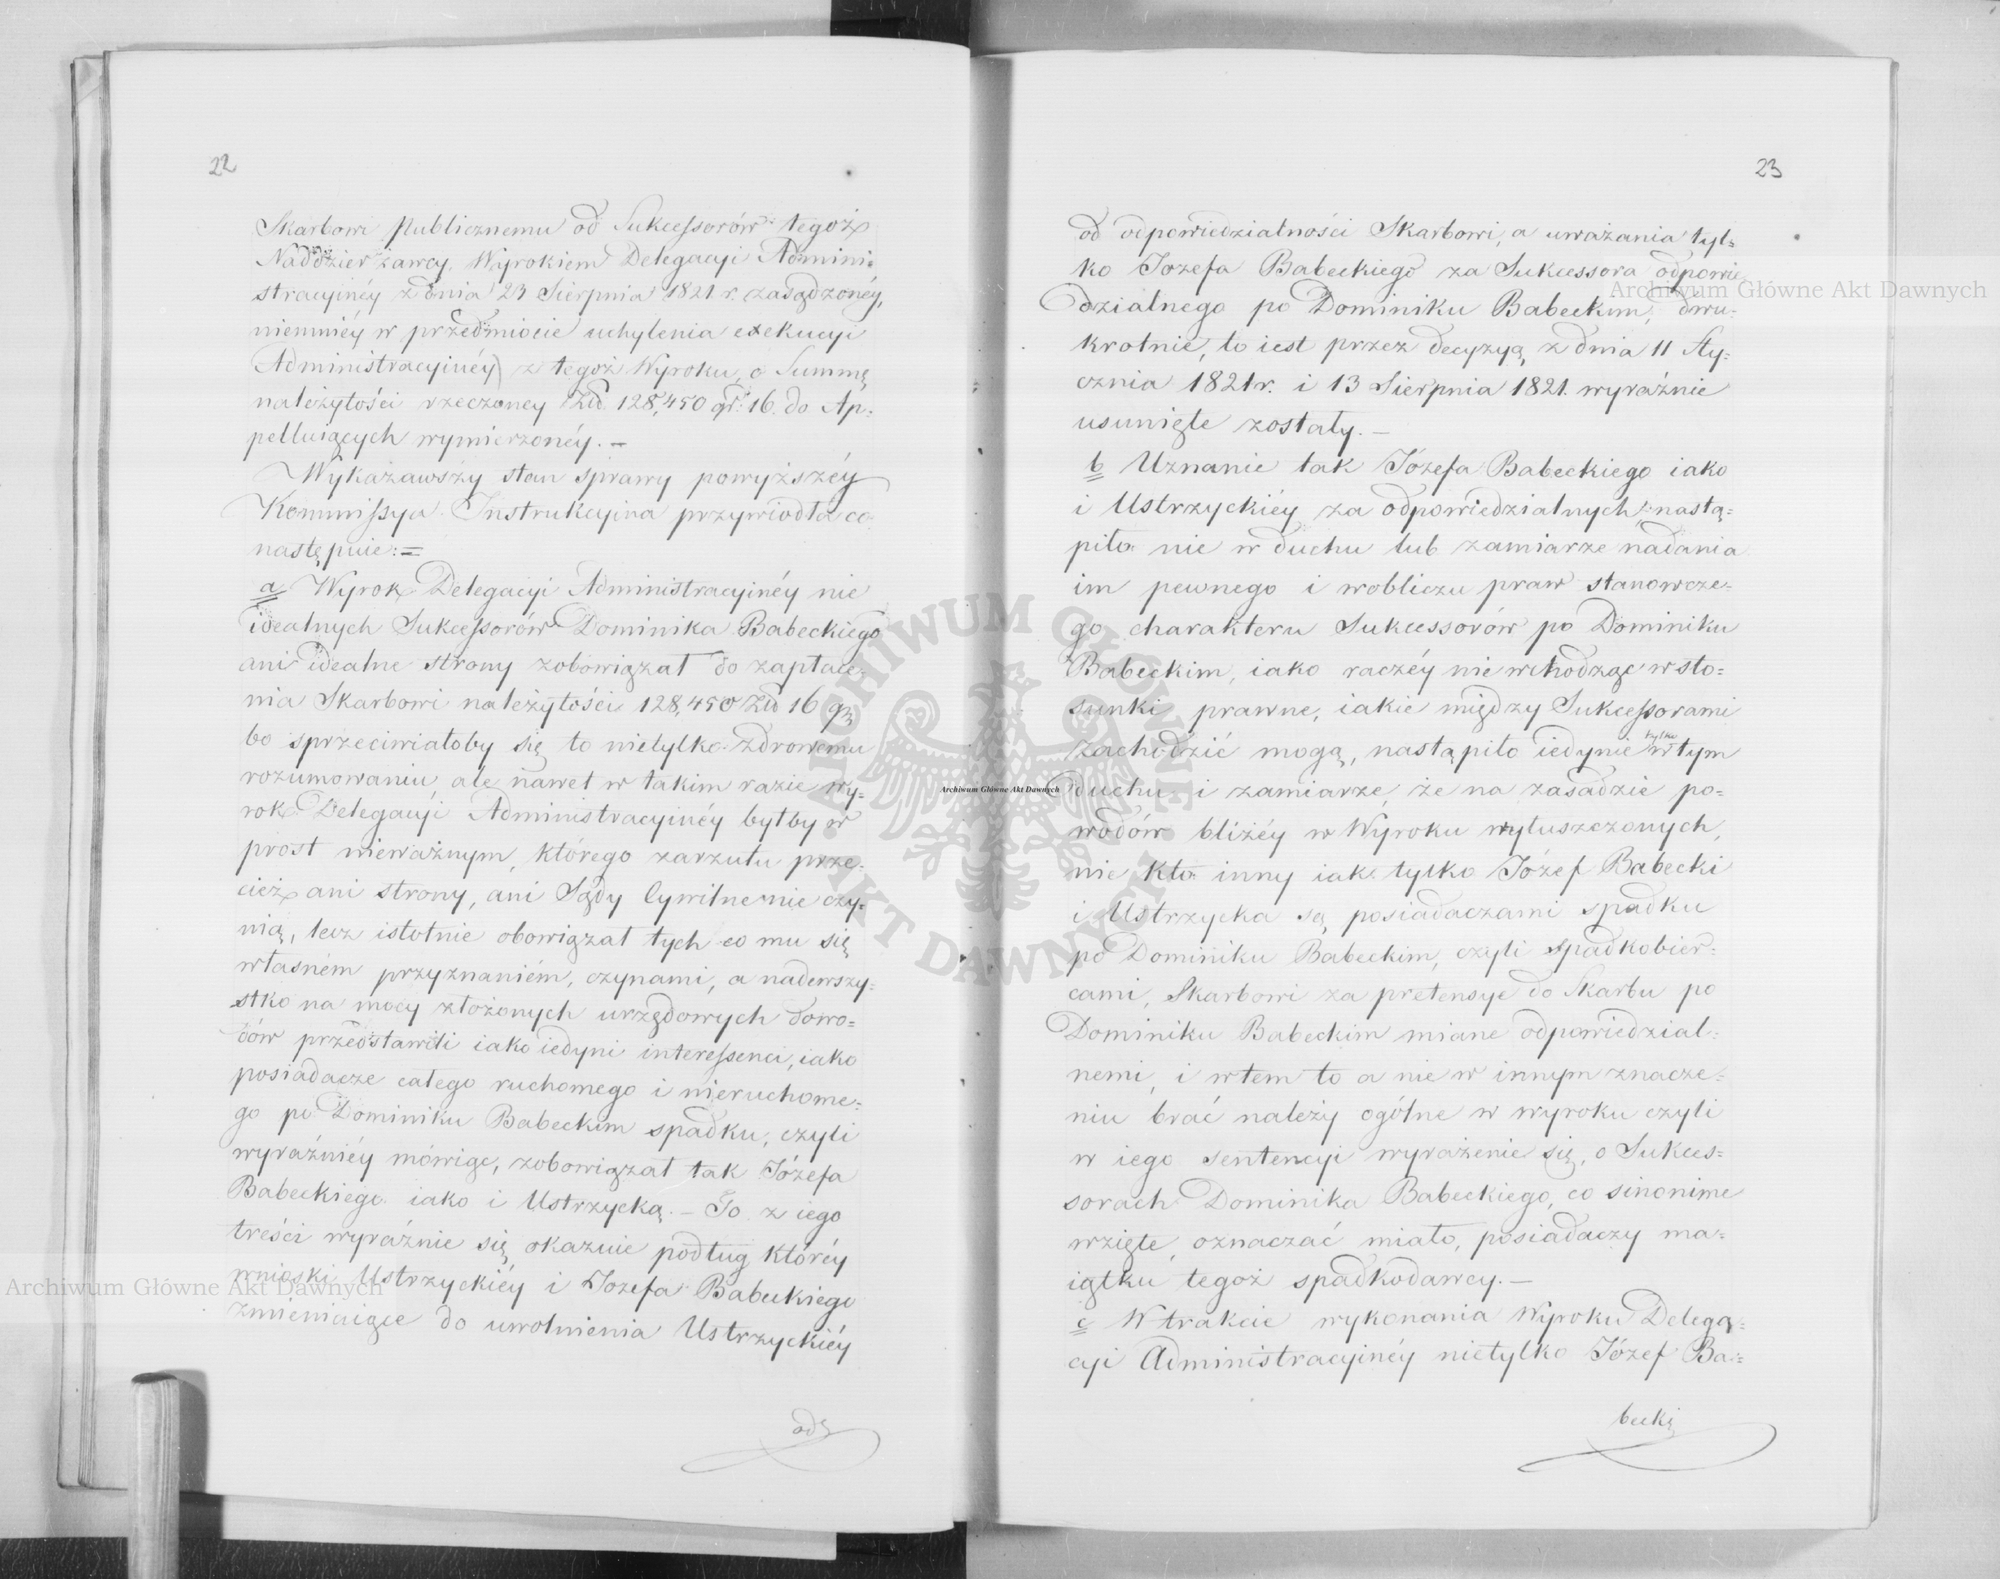 22
Skarbowi publicznemu od Sukcessorów tegoż
Naddzierżawcy, Wyrokiem Delegacyi Admini-
stracyinéy z dnia 23 Sierpnia 1821 r. zasądzonéy,
niemniéy w przedmiocie uchylenia exekucyi
Administracyinéy z tegoż Wyroku o Summę
należytości rzeczoney Złł. 128,450 gr. 16. do Ap-
pelluiących wymierzonéy. –
Wykazawszy stan sprawy powyższéy
Kommissya Instrukcyina przywiodła co
następuie: =
a Wyrok Delegacyi Administracyinéy nie
idealnych Sukcessorów Dominika Babeckiego
ani idealne strony zobowiązał do zapłace-
nia Skarbowi należytości 128,450 Złł 16 gr
bo sprzeciwiałoby się to nietylko zdrowemu
rozumowaniu, ale nawet w takim razie wy-
rok Delegacyi Administracyinéy byłby w
prost nieważnym, którego zarzutu prze-
cież ani strony, ani Sądy Cywilne nie czy-
nią, lecz istotnie obowiązał tych co mu się
własném przyznaniém, czynami, a nadewszy-
stko na mocy złożonych urzędowych dowo-
dów przedstawili iako iedyni interessenci, iako
posiadacze całego ruchomego i nieruchome-
go po Dominiku Babeckim spadku, czyli
wyraźniéy mówiąc, zobowiązał tak Józefa
Babeckiego iako i Ustrzycką. – To z iego
treści wyraźnie się okazuie podług któréy
wnioski Ustrzyckiéy i Jozefa Babeckiego
zmieniaiące do uwolnienia Ustrzyckiéy
od
23
od odpowiedzialności Skarbowi, a uważania tyl-
ko Jozefa Babeckiego za Sukcessora odpowie
dzialnego po Dominiku Babeckim, dwu-
krotnie, to iest przez decyzyą z dnia 11 Sty-
cznia 1821 r. i 13 Sierpnia 1821. wyraźnie
usunięte zostały. –
b Uznanie tak Józefa Babeckiego iako
i Ustrzyckiéy za odpowiedzialnych nastą-
piło nie w duchu lub zamiarze nadania
im pewnego i wobliczu praw stanowcze-
go charakteru Sukcessorów po Dominiku
Babeckim, iako raczéy nie wchodząc w sto-
sunki prawne, iakie między Sukcessorami
zachodzić mogą, nastąpiło iedynie tylko w tym
duchu i zamiarze, że na zasadzie po-
wodów bliżéy w Wyroku wyłuszczonych,
nie kto inny iak tylko Józef Babecki
i Ustrzycka są posiadaczami spadku
po Dominiku Babeckim, czyli spadkobier-
cami, Skarbowi za pretensye do Skarbu po
Dominiku Babeckim miane odpowiedzial-
nemi, i w tem to a nie w innym znacze-
niu brać należy ogólne w wyroku czyli
w iego sentencyi wyrażenie się, o Sukces-
sorach Dominika Babeckiego, co sinonime
wzięte, oznaczać miało, posiadaczy ma-
iątku tegoż spadkodawcy. –
c W trakcie wykonania Wyroku Delega-
cyi Administracyinéy nietylko Józef Ba-
becki
Archiwum Główne Akt Dawnych
Archiwum Główne Akt Dawnych
Archiwum Główne Akt Dawnych
ARCHIWUM GŁÓWNE AKT DAWNYCH